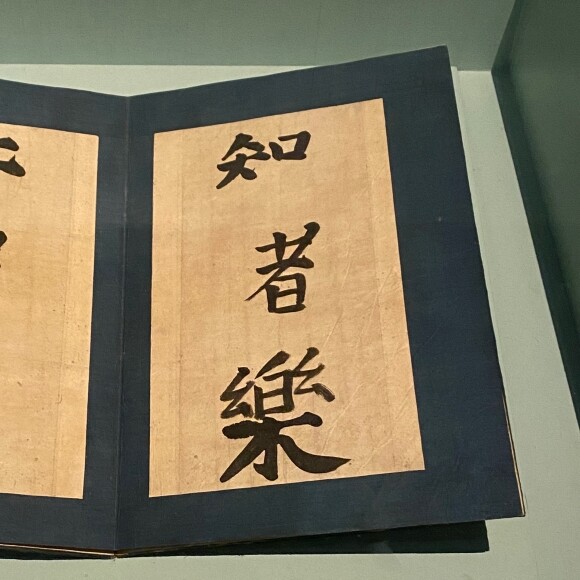 知者樂